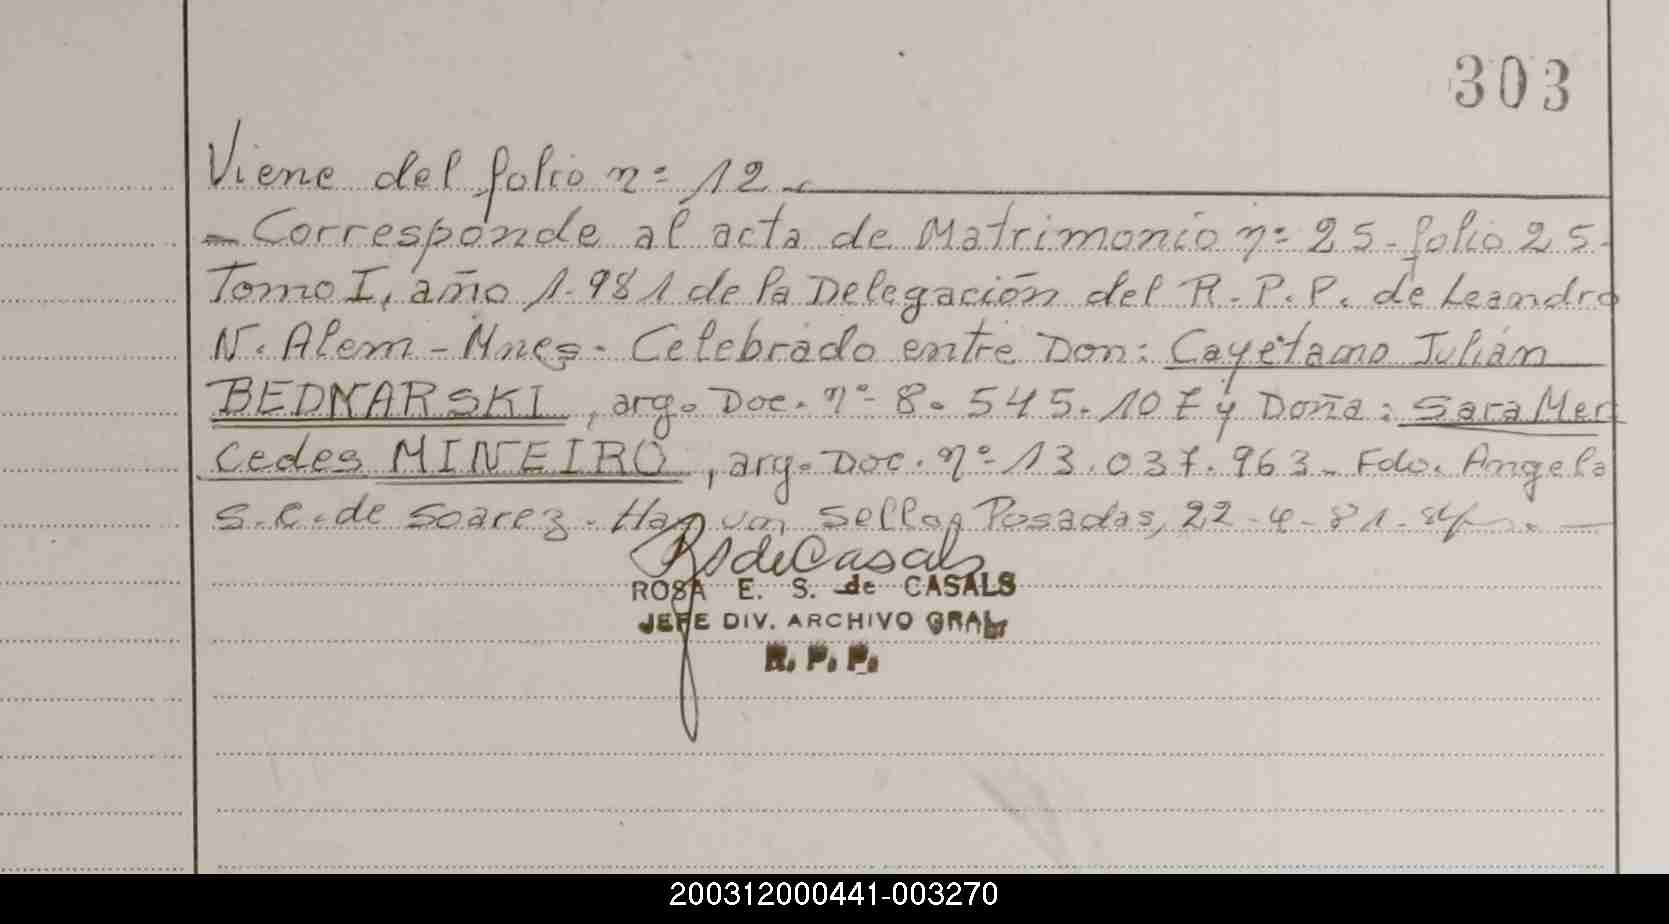 303
Viene del folio nº 12
- Corresponde al acta de Matrimonio nº 25-folio 25-
Tomo I, año 1.981 de la Delegación del R.P.P. de Leandro
N. Alem - Mnes - Celebrado entre Don: Cayetano Julián
BEDNARSKI, arg. Doc. nº 8.545.107 y Doña: Sara Mer
cedes MINEIRO, arg. Doc. nº 13.037.963- Fdo. Angela
S.C. de Soarez. Hay un sello, Posadas, 22-4-81.
RS de Casals
ROSA E. S. de CASALS
JEFE DIV. ARCHIVO GRAL
R. P. P.
200312000441-003270